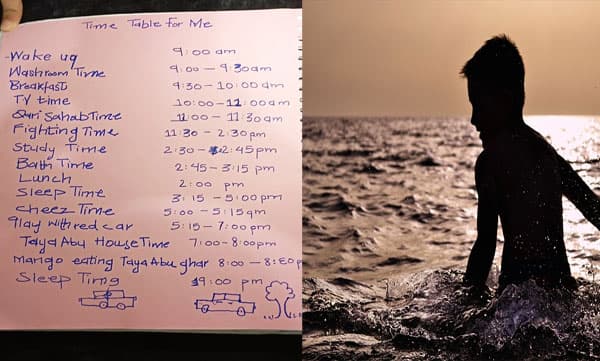 Time Table for Me
Wake uq 9:00 am
Washroom Time 9:00 – 9:30am
Breakfast 9:30 – 10:00am
TV time 10:00 – 11:00am
Quri Sahab Time 11:00 – 11:30am
Fighting Time 11:30 – 2:30pm
Study Time 2:30 – 2:45pm
Bath Time 2:45 – 3:15 pm
Lunch 2:00 pm
Sleep Time 3:15 – 5:00pm
Cheez Time 5:00 – 5:15qm
Play with red car 5:15 – 7:00pm
Taya Abu House Time 7:00 – 8:00pm
Mango eating Taya Abu ghar 8:00 – 8:50p
Sleep Time 9:00 pm